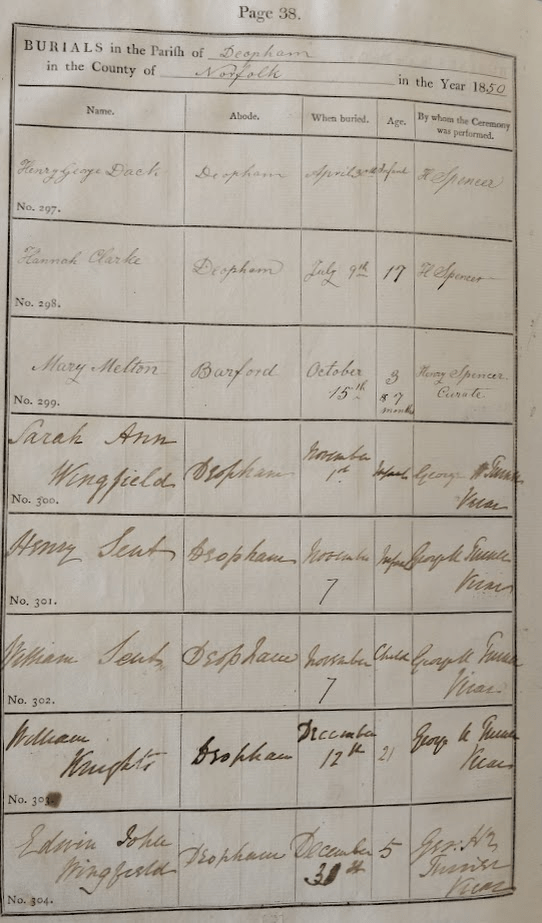 Page 38.
BURIALS in the Parish of Deopham
in the County of Norfolk in the Year 1850
Name. Abode. When buried. Age. By whom the Ceremony was performed.
Henry George Dack Deopham April 30th Infant H Spencer
No. 297.
Hannah Clarke Deopham July 9th 17 H Spencer
No. 298.
Mary Melton Barford October 15th 3 & 7 months Henry Spencer Curate
No. 299.
Sarah Ann
Wingfield Deopham November 1st Infant George H Turner Vicar
No. 300.
Henry Deopham November 7 Infant George H Turner Vicar
No. 301.
William Deopham November 7 Child George H Turner Vicar
No. 302.
William
Deopham December 12th 21 George H Turner Vicar
No. 303.
Edwin John
Wingfield Deopham December 5 Geo. H Turner Vicar
No. 304.